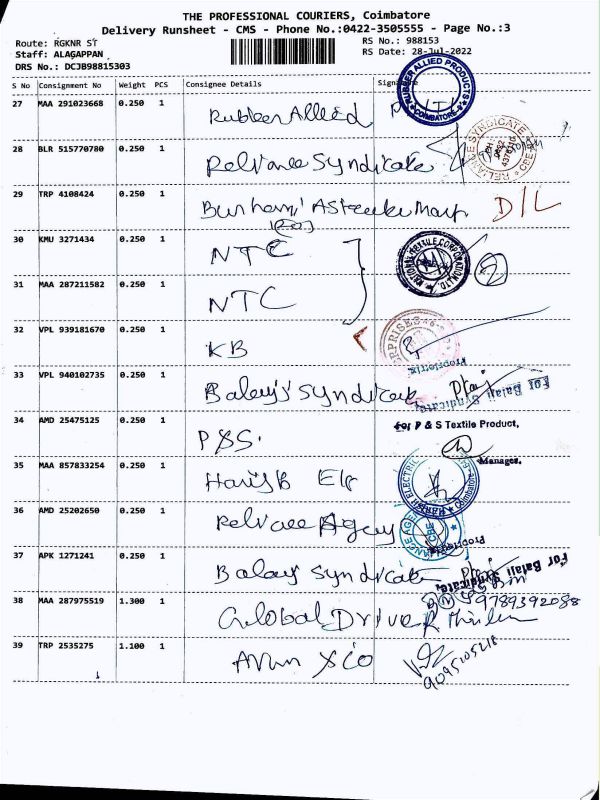 THE PROFESSIONAL COURIERS, Coimbatore
Delivery Runsheet - CMS - Phone No.:0422-3505555 - Page No.:3
Route: RGKNR ST
RS No.: 988153
Staff: ALAGAPPAN
RS Date: 28-Jul-2022
DRS No.: DCJB98815303
S No Consignment No Weight PCS Consignee Details Signature
27 MAA 291023668 0.250 1 Rubber Allied
RUBBER ALLIED PRODUCTS COIMBATORE
28 BLR 515770780 0.250 1 Reliance Syndicate
RELIANCE SYNDICATE
29 TRP 4108424 0.250 1 D/L
30 KMU 3271434 0.250 1 NTC
NATIONAL TEXTILE CORPORATION LTD.
31 MAA 287211582 0.250 1 NTC
32 VPL 939181670 0.250 1 KB
Proprietrix
33 VPL 940102735 0.250 1 Balaji Syndicate
For Balaji Syndicate,
34 AMD 25475125 0.250 1 P&S.
For P & S Textile Product,
Manager.
35 MAA 857833254 0.250 1 Harish Ele
HARISH ELECTRIC Coimbatore
36 AMD 25202650 0.250 1 Reliance Agency
CBE
37 APK 1271241 0.250 1 Balaji Syndicate
For Balaji Syndicate,
38 MAA 287975519 1.300 1 Global Drive
9789392088
39 TRP 2535275 1.100 1 Arun & Co